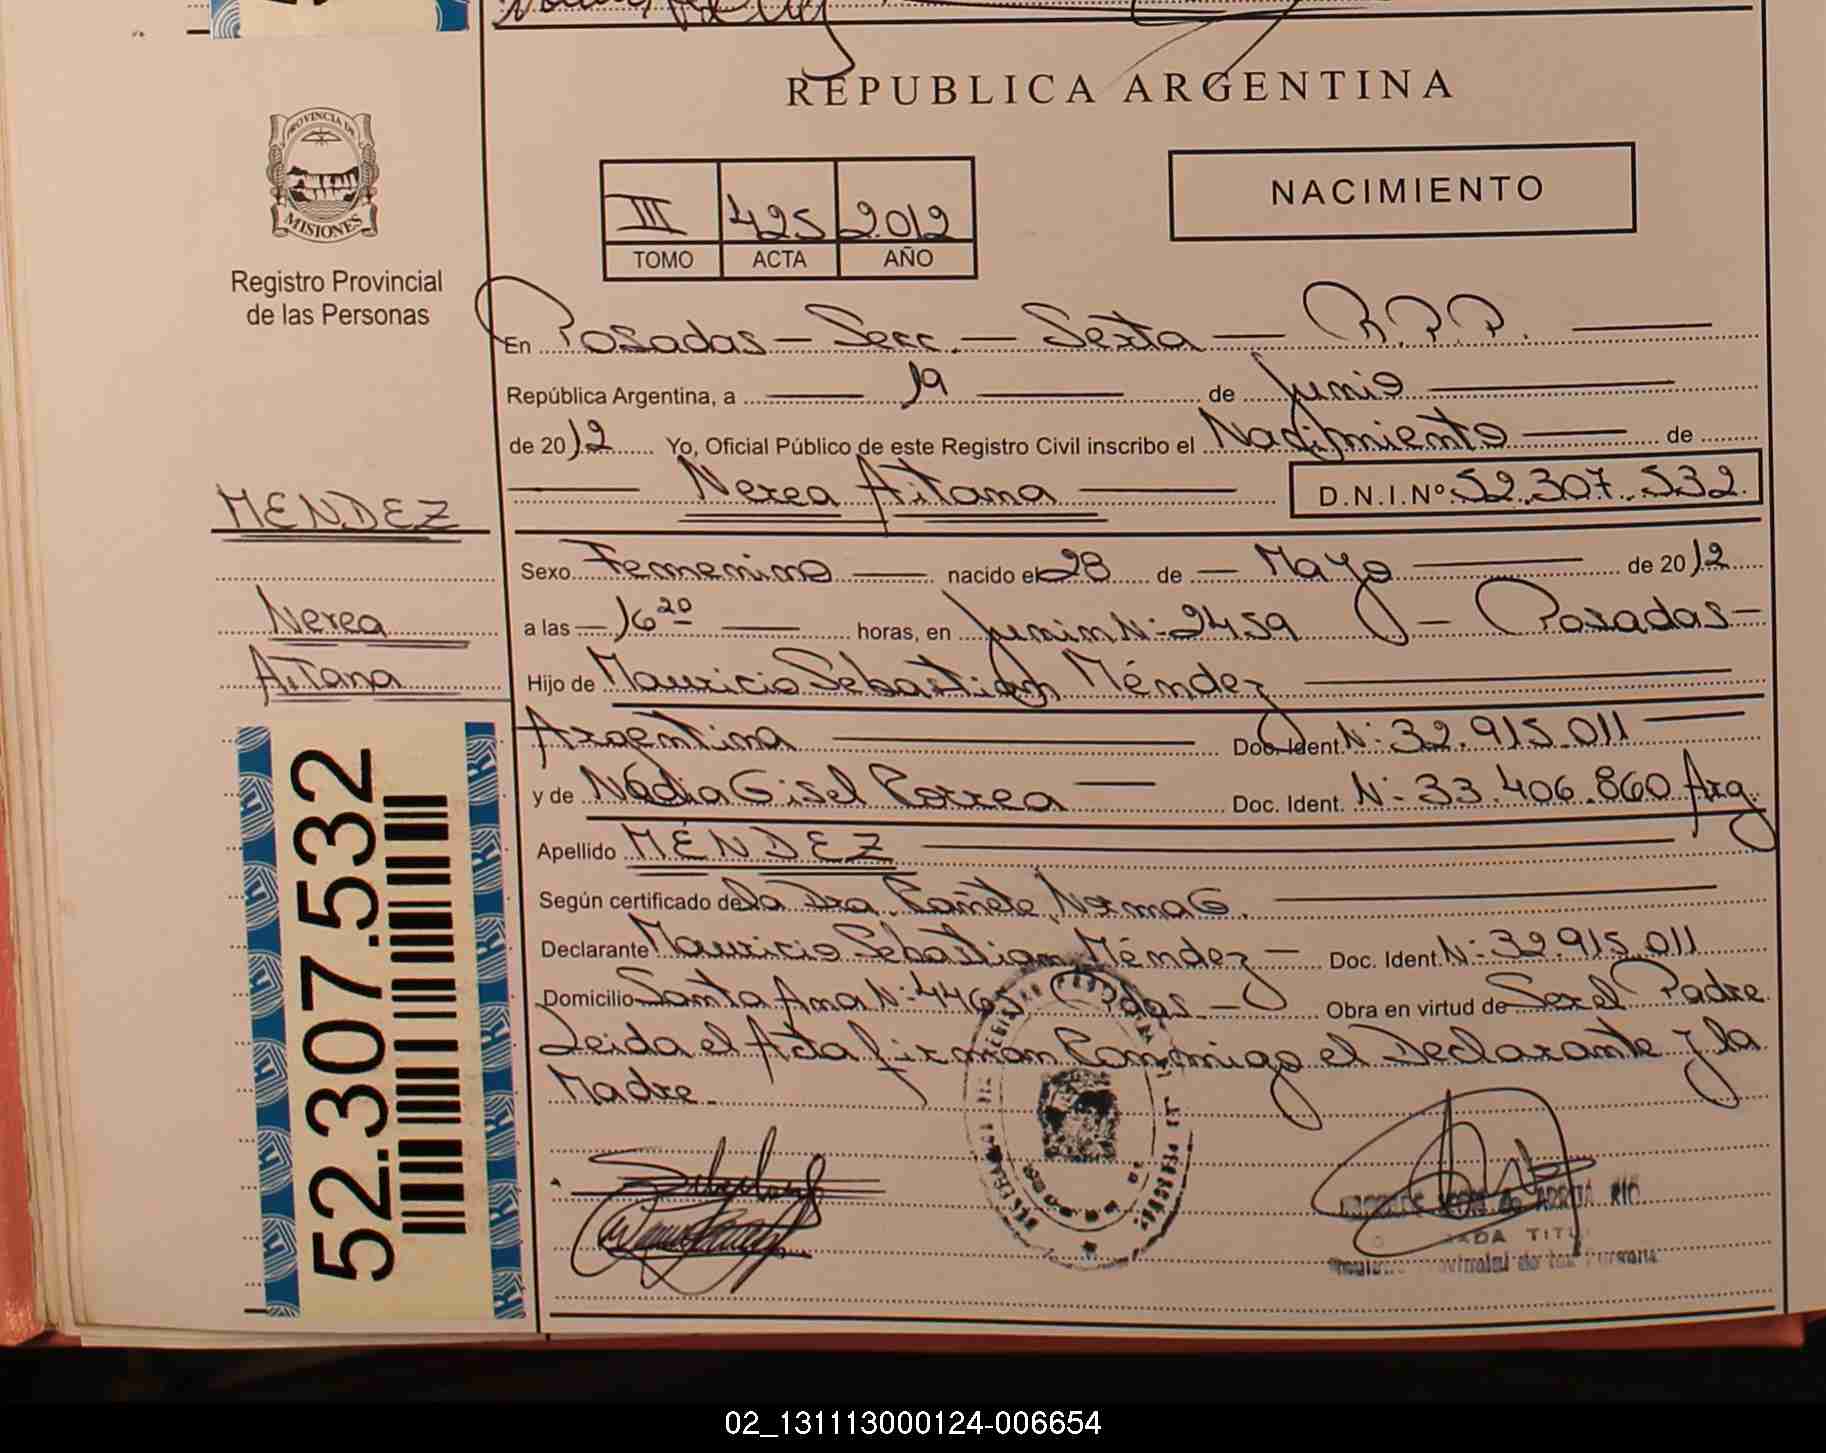 REPUBLICA ARGENTINA
PROVINCIA DE
MISIONES
Registro Provincial
de las Personas
NACIMIENTO
III 425 2012
TOMO ACTA AÑO
En Posadas - Secc. - Sexta - R.P.P.
República Argentina, a 19 de Junio
de 2012 Yo, Oficial Público de este Registro Civil inscribo el Nacimiento de
Nerea Aitana D.N.I.Nº 52.307.532
MENDEZ
Nerea
Aitana
Sexo Femenino nacido el 28 de Mayo de 2012
a las 16 20 horas, en Junin N: 2459 - Posadas -
Hijo de Mauricio Sebastian Méndez
Argentina Doc. Ident N: 32.915.011
y de Nadia Gisel Correa Doc. Ident. N: 33.406.860 Arg
Apellido MÉNDEZ
Según certificado de la Dra. Cañete, Norma G.
Declarante Mauricio Sebastian Méndez - Doc. Ident. N: 32.915.011
Domicilio Santa Ana N: Obra en virtud de Ser el Padre
Leida el Acta firman Conmigo el Declarante y la
Madre.
52.307.532
02_131113000124-006654